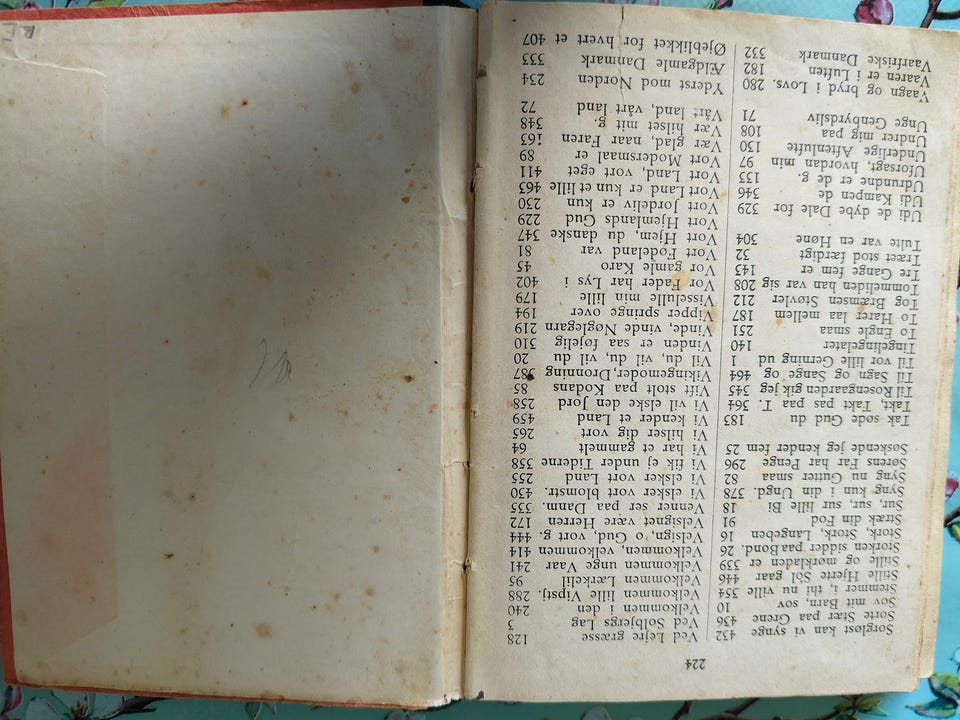 224
Sorgløst kan vi synge 432
Sorte Stær paa Grene 436
Sov mit Barn, sov 10
Stemmer i, thi nu ville 354
Stille Hjerte Sol gaar 446
Stille og mørkladen er 339
Storken sidder paa Bond. 26
Stork, Stork, Langeben 16
Stræk din Fod 91
Sur, sur, sur lille Bi 18
Syng kun i din Ungd. 378
Syng nu Gutter smaa 82
Sørens Far har Penge 296
Søskenske jeg kender fem 25
Tak søde Gud du 183
Takt, Takt pas paa T. 364
Til Rosengaarden gik jeg 345
Til Sagn og Sange og 464
Til vor lille Gerning ud 1
Tingelingelater 140
To Engle smaa 251
To Harer laa mellem 187
Tog Bræmsen Støvler 212
Tommeliden han var sig 208
Tre Gange fem er 143
Træet stod færdigt 32
Tulte var en Høne 304
Udi de dybe Dale for 329
Udi Kampen de 346
Udrundne er de g. 133
Uforsagt, hvordan min 97
Underlige Aftenlufte 130
Undrer mig paa 108
Unge Genbyrdsliv 71
Vaagn og bryd i Lovs. 280
Vaaren er i Luften 182
Vaarfriske Danmark 332
Ved Lejre græsse 128
Ved Solbjergs Lag 3
Velkommen i den 240
Velkommen lille Vipstj. 288
Velkommen Lærkelil 95
Velkommen unge Vaar 241
Velkommen, velkommen 414
Velsign, o Gud, vort g. 444
Velsignet være Herren 172
Venner ser paa Danm. 335
Vi elsker vort blomstr. 430
Vi elsker vort Land 255
Vi fik ej under Tiderne 358
Vi har et gammelt 64
Vi hilser dig vort 265
Vi kender et Land 459
Vi vil elske den Jord 258
Vift stolt paa Kodans 85
Vikingemoder, Dronning 387
Vil du, vil du, vil du 20
Vinden er saa føjelig 310
Vinde, vinde Nøglegarn 219
Vipper springe over 194
Visselulle min lille 179
Vor Fader har Lys i 402
Vor gamle Karo 45
Vort Fødeland var 81
Vort Hjem, du danske 347
Vort Hjemlands Gud 229
Vort Jordeliv er kun 230
Vort Land er kun et lille 463
Vort Land, vort eget 411
Vort Modersmaal er 89
Vær glad, naar Faren 163
Vær hilset mit g. 348
Vårt land, vårt land 72
Yderst mod Norden 234
Ældgamle Danmark 333
Øjeblikket for hvert et 407